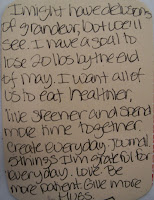 I might have delusions
of grandeur, but we'll
see. I have a goal to
lose 20 lbs by the end
of may. I want all of
us to eat healthier,
live greener and spend
more time together.
Create everyday. Journal
5 things I'm grateful for
everyday. Love. Be
more patient. Give more
Hugs.